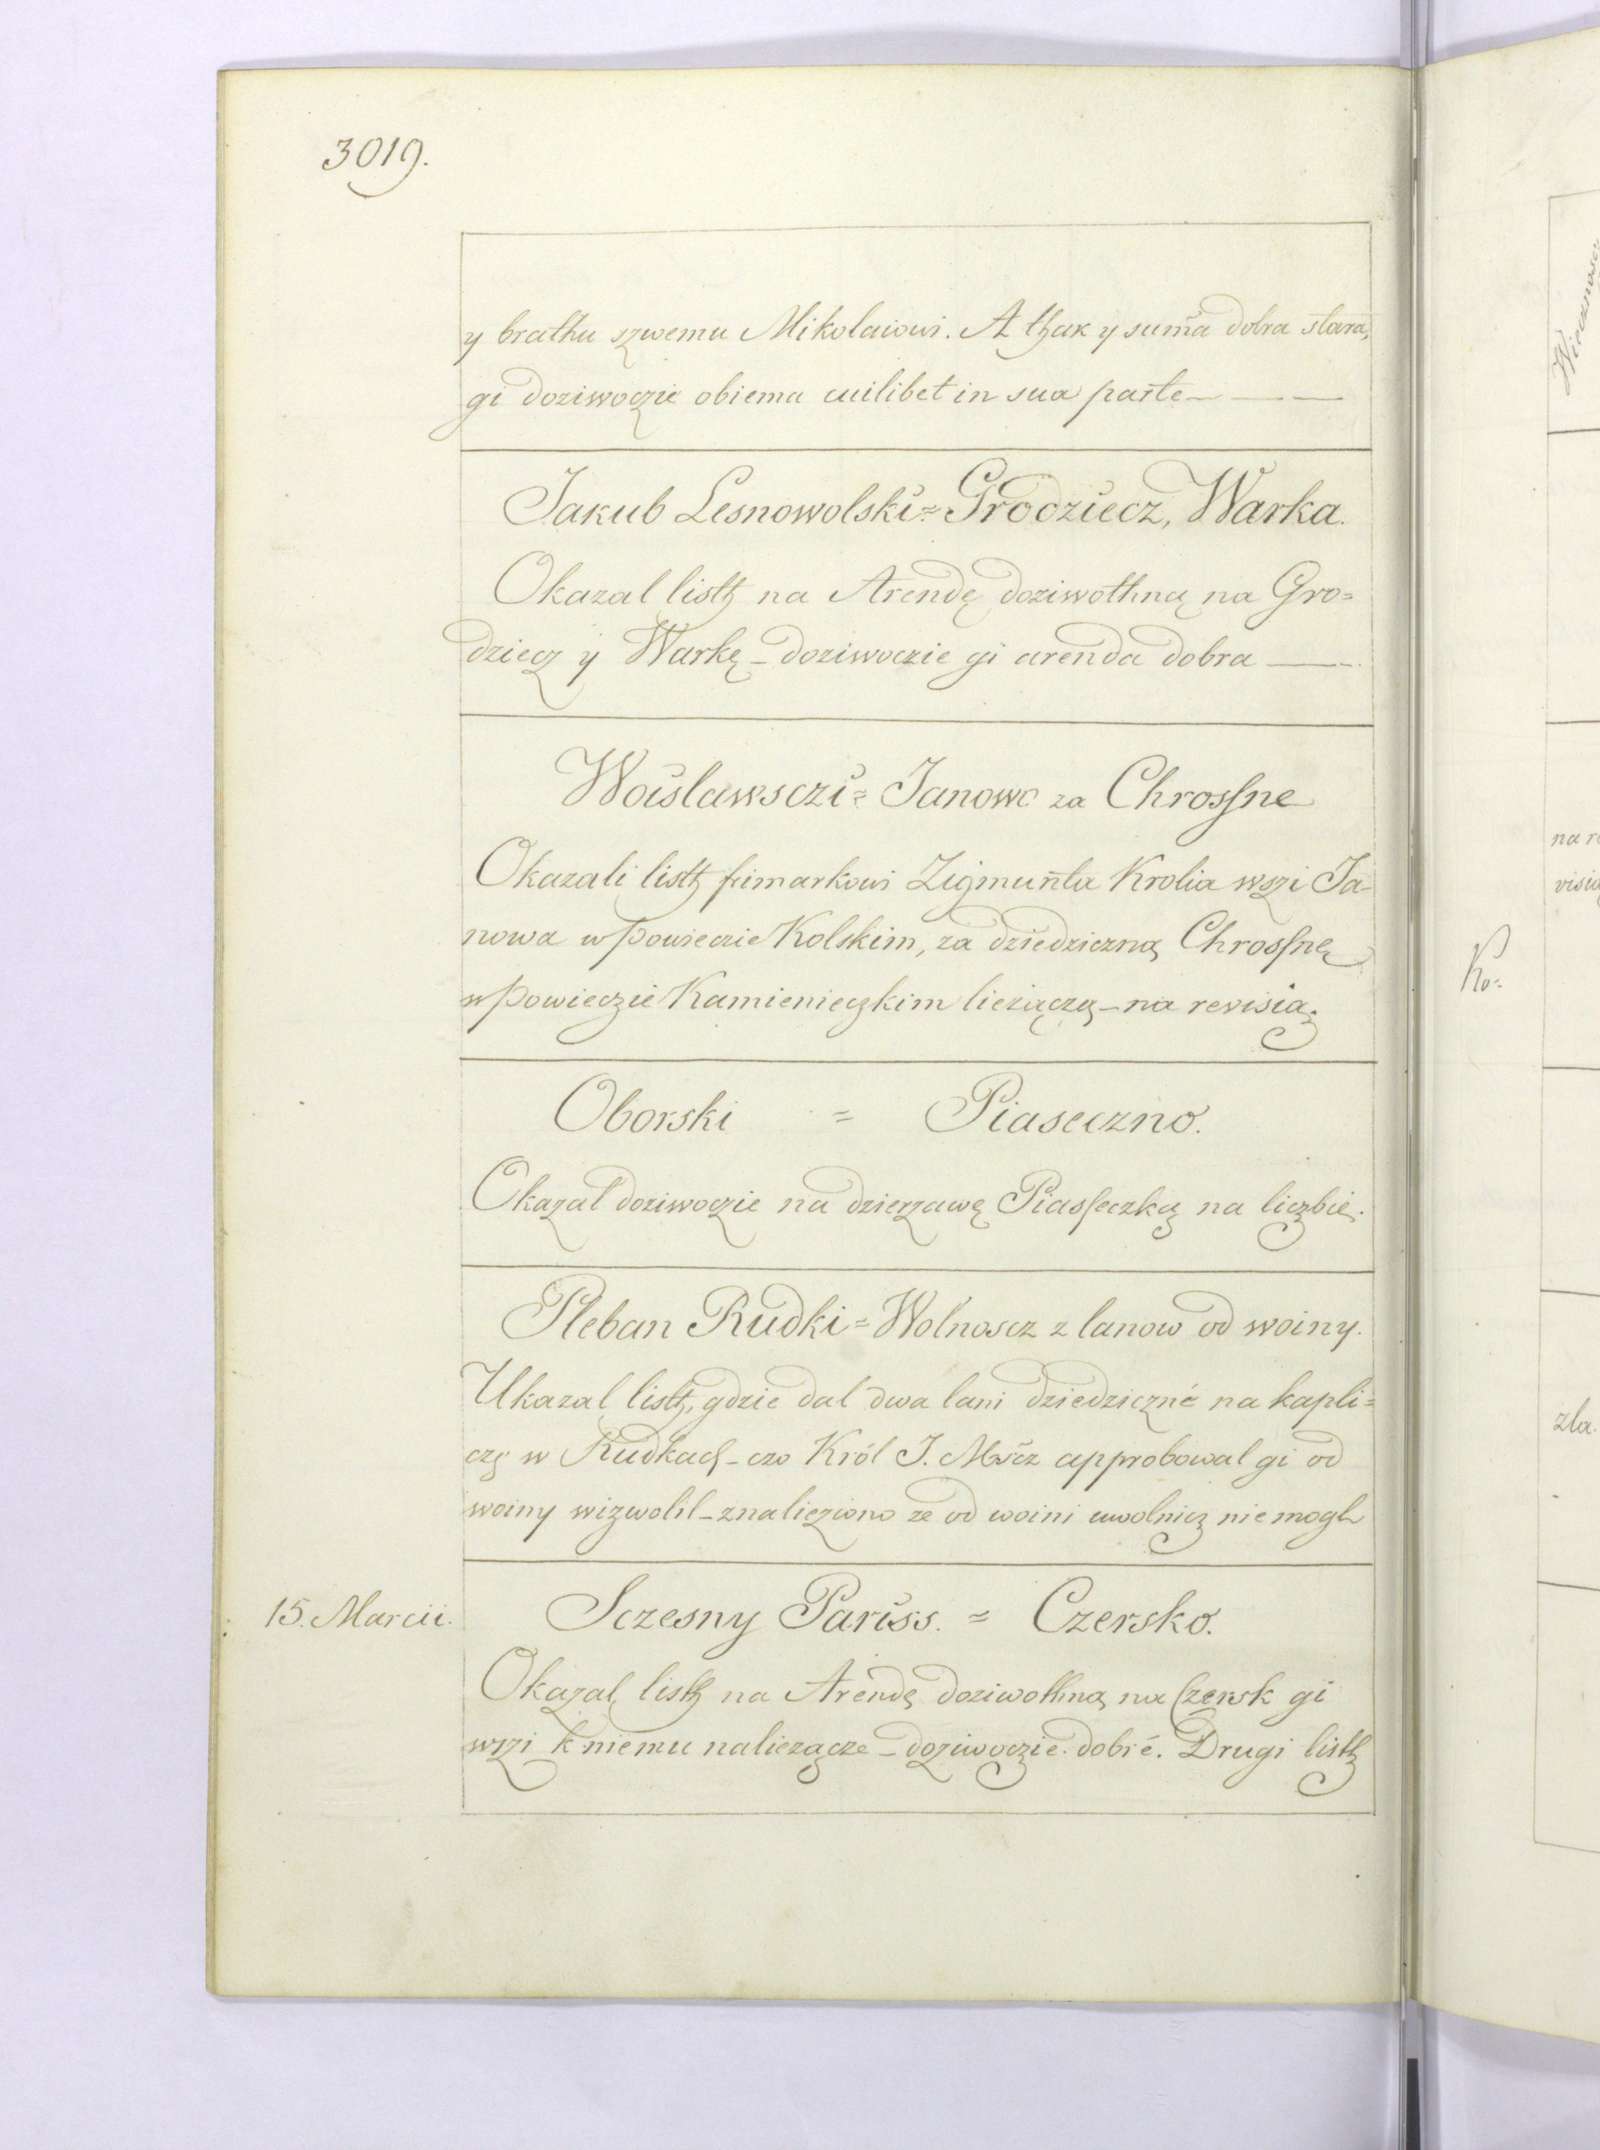 3019.
y brathu szwemu Mikolaiowi. A thak y suma dobra stara,
gi doziwoczie obiema cuilibet in sua parte
Jakub Lesnowolski = Grodziecz, Warka.
Okazal listh na Arendę doziwothną na Gro=
dziecz y Warkę _ doziwoczie gi arenda dobra
Woislawsczi = Janowo za Chrossne
Okazali listh frimarkowi Zigmunta Krolia wszi Ja-
nowa w powieczie Kolskim, za dziedziczną Chrossnę
w powieczie Kamienieczkim liezączą _ na revisią.
Oborski = Piaseczno.
Okazal doziwoczie na dzierzawę Piasseczką na liczbie.
Pleban Rudki = Wolnoscz z lanow od woiny.
Ukazal listh, gdzie dal dwa lani dziedziczné na kapli=
czę w Rudkach _ czo Król J. Mscz approbowal gi od
woiny wizwolil _ znalieziono ze od woini uwolnicz nie mogl
15. Marcii.
Sczesny Pariss. = Czersko.
Okazal listh na Arendę doziwothną na Czersk gi
wszi k niemu naliezącze _ doziwoczie dobré. Drugi listh
na re
visią
Ko=
zla.